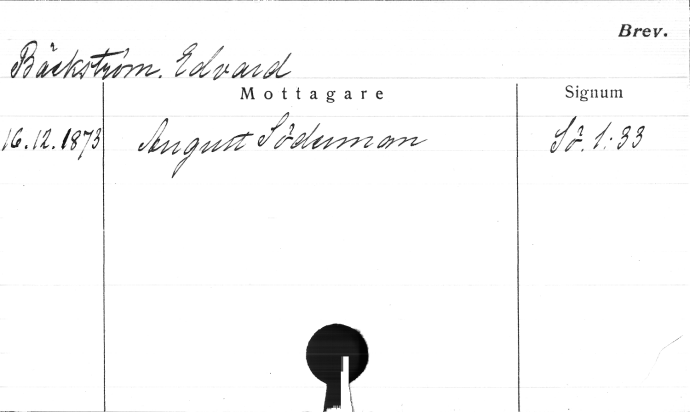 Brev.
Bäckström, Edvard
Mottagare Signum
16.12.1873 August Söderman Sö. 1:33